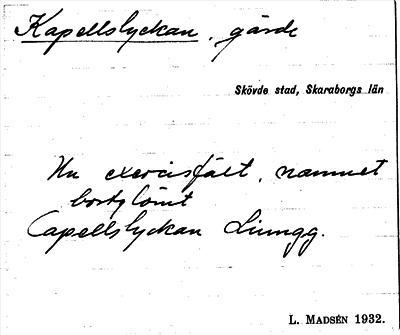 Kapellslyckan, gärde
Skövde stad, Skaraborgs län
Nu exercisfält, namnet
bortglömt
Capellslyckan Ljungg.
L. MADSÉN 1932.